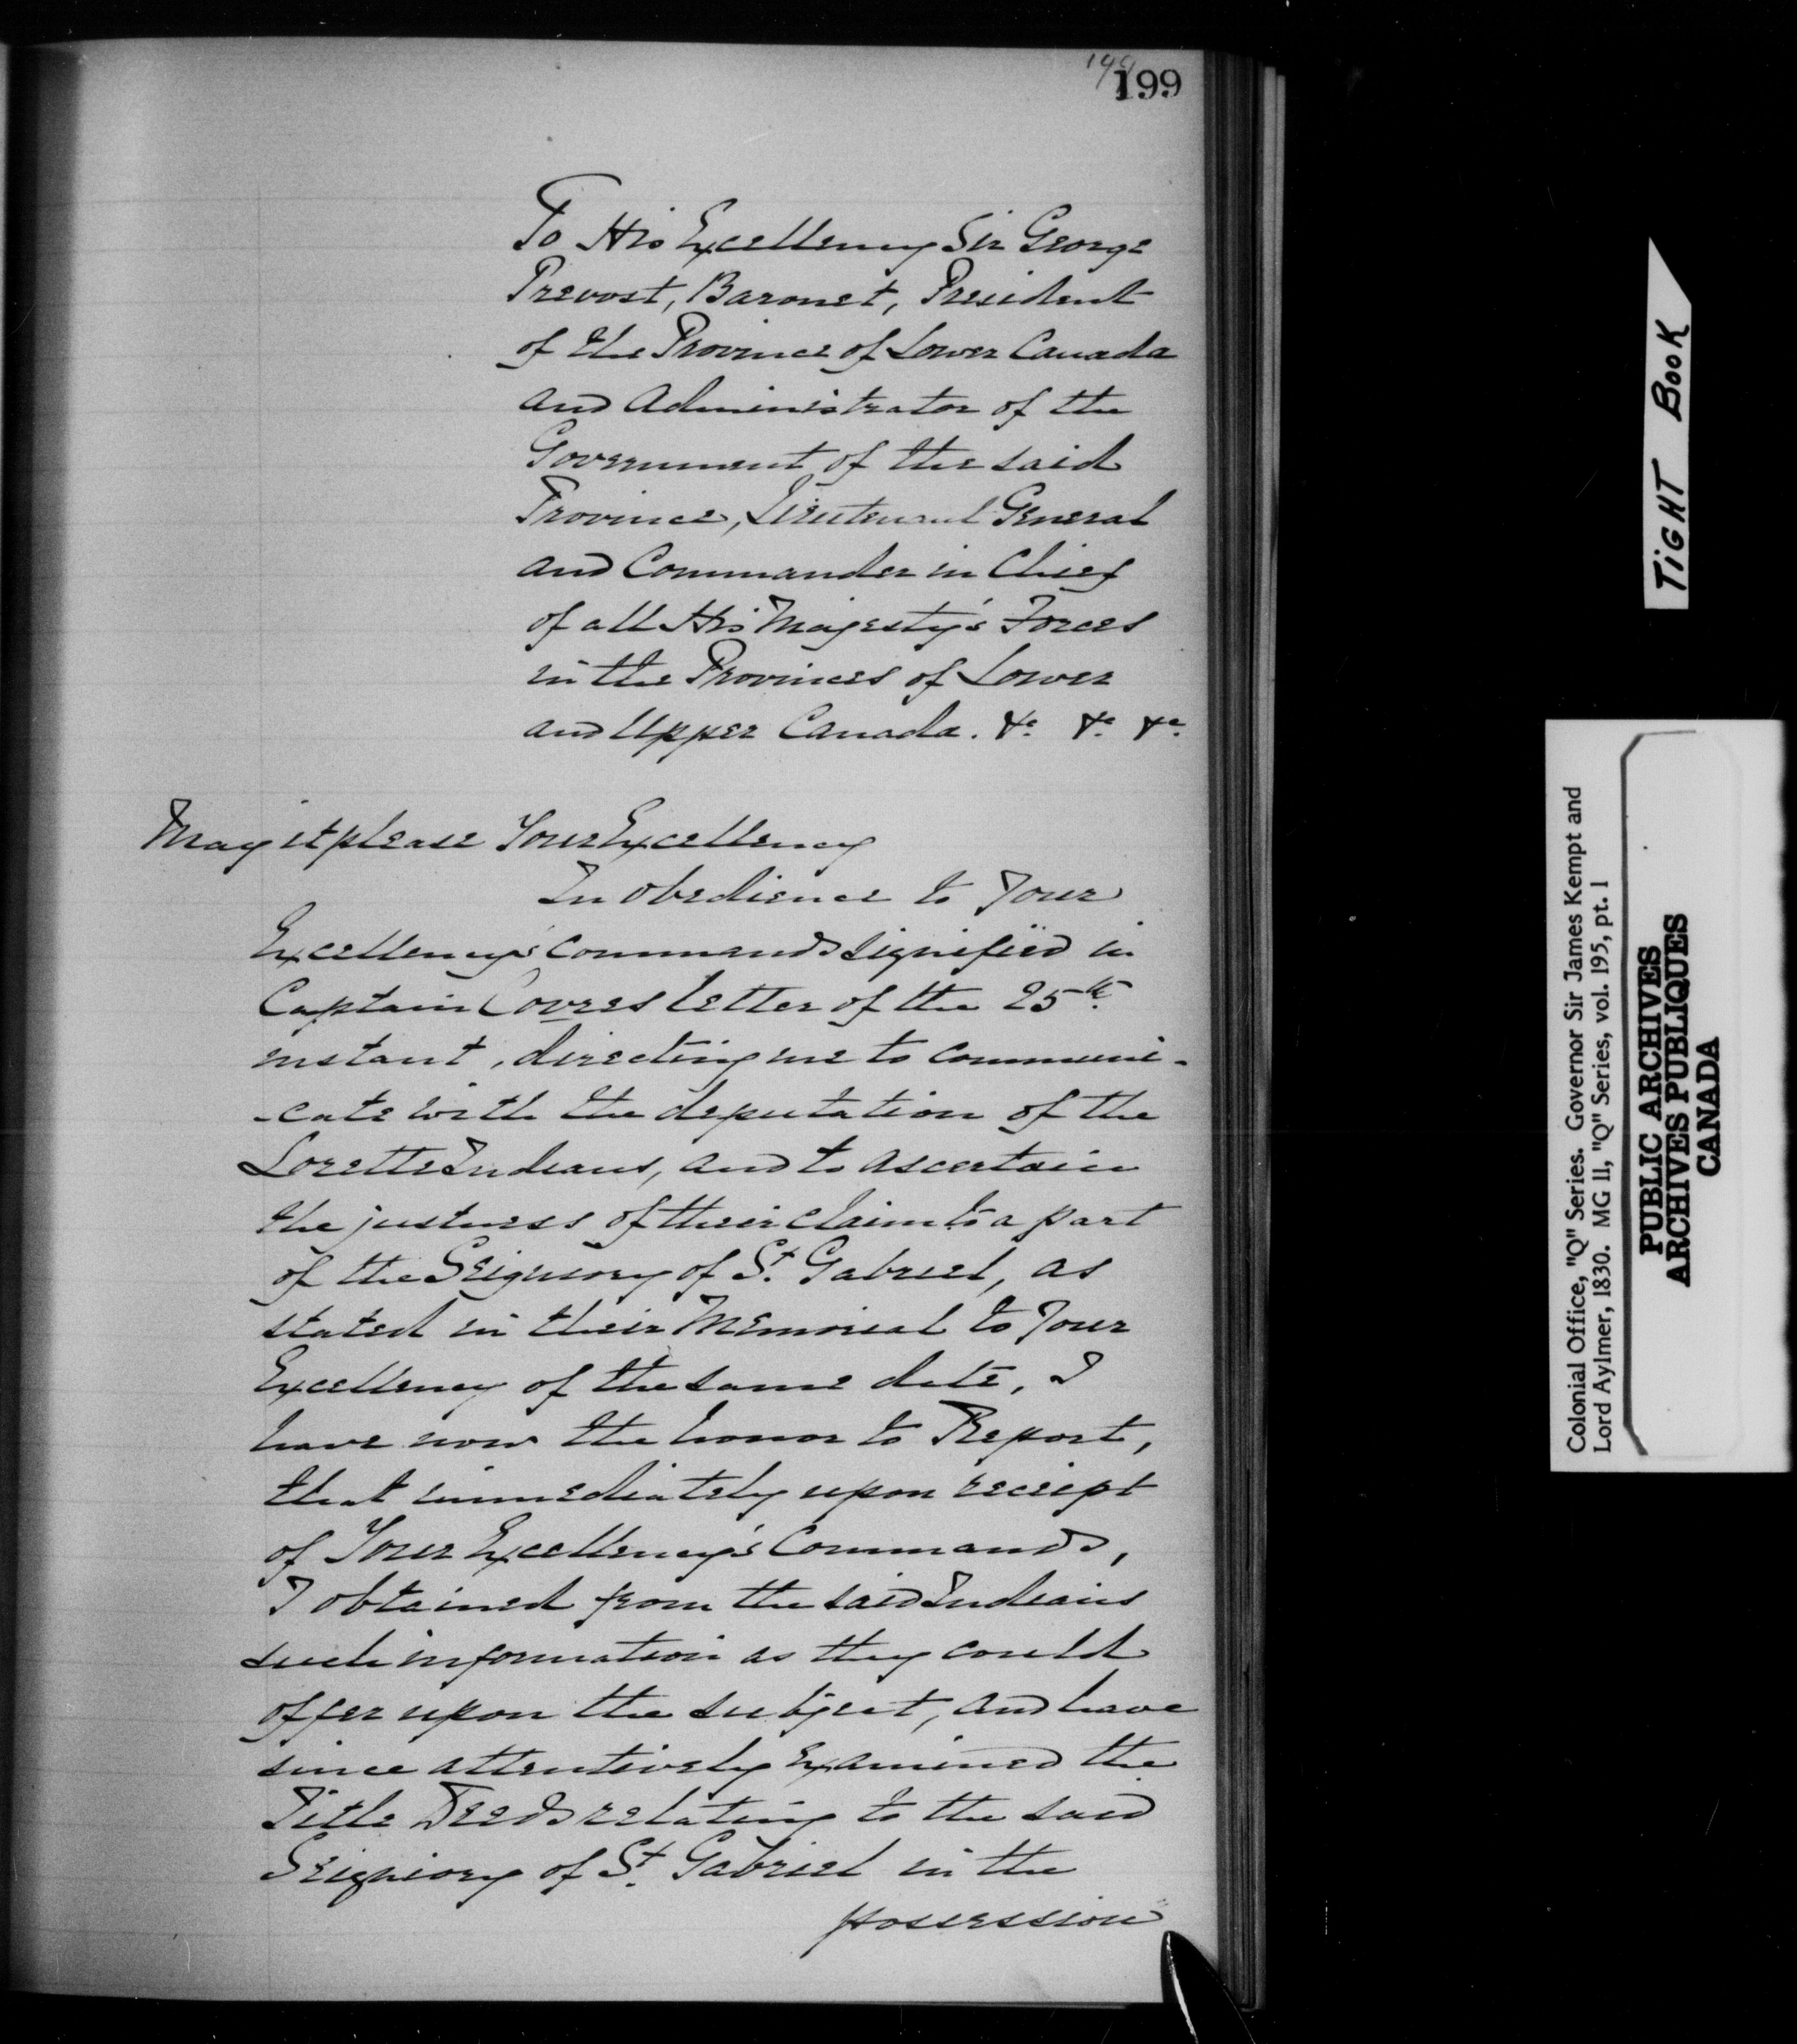 199
To His Excellency Sir George
Prevost, Baronet, President
of the Province of Lower Canada
and Administrator of the
Government of the said
Province, Lieutenant General
and Commander in Chief
of all His Majesty's Forces
in the Provinces of Lower
and Upper Canada. &c. &c. &c.
May it please Your Excellency
In obedience to Your
Excellency's commands signified in
Captain letter of the 25th
instant, directing me to communi-
-cate with the deputation of the
Lorette Indians, and to ascertain
the justness of their claim to a part
of the Seigniory of St. Gabriel, as
stated in their Memorial to Your
Excellency of the same date, I
have now the honor to Report,
that immediately upon receipt
of Your Excellency's Commands,
I obtained from the said Indians
such information as they could
offer upon the subject, and have
since attentively examined the
Title Deeds relating to the said
Seigniory of St. Gabriel in the
possession
TIGHT BOOK
Colonial Office, "Q" Series. Governor Sir James Kempt and
Lord Aylmer, 1830. MG 11, "Q" Series, vol. 195, pt. 1
PUBLIC ARCHIVES
ARCHIVES PUBLIQUES
CANADA